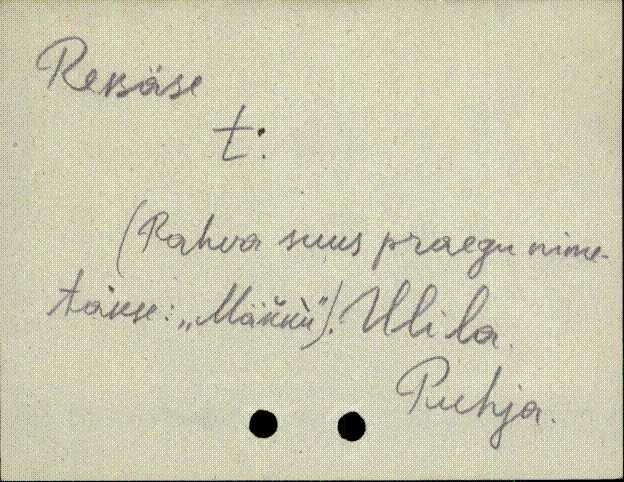 Rekäse
t.
(Rahva suus praegu nime-
täkse: „Mäkkü"). Ulila.
Puhja.